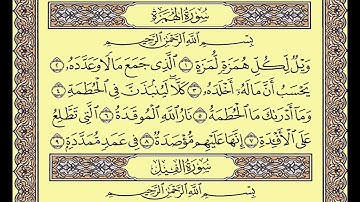 سُورَةُ الهُمَزَةِ
بِسْمِ اللَّهِ الرَّحْمَٰنِ الرَّحِيمِ
وَيْلٌ لِّكُلِّ هُمَزَةٍ لُّمَزَةٍ ١ الَّذِي جَمَعَ مَالًا وَعَدَّدَهُۥ ٢
يَحْسَبُ أَنَّ مَالَهُۥٓ أَخْلَدَهُۥ ٣ كَلَّا ۖ لَيُنۢبَذَنَّ فِي الْحُطَمَةِ ٤
وَمَآ أَدْرَىٰكَ مَا الْحُطَمَةُ ٥ نَارُ اللَّهِ الْمُوقَدَةُ ٦ الَّتِي تَطَّلِعُ
عَلَى الْأَفْـِٔدَةِ ٧ إِنَّهَا عَلَيْهِم مُّؤْصَدَةٌ ٨ فِي عَمَدٍ مُّمَدَّدَةٍۭ ٩
سُورَةُ الفِيلِ
بِسْمِ اللَّهِ الرَّحْمَٰنِ الرَّحِيمِ